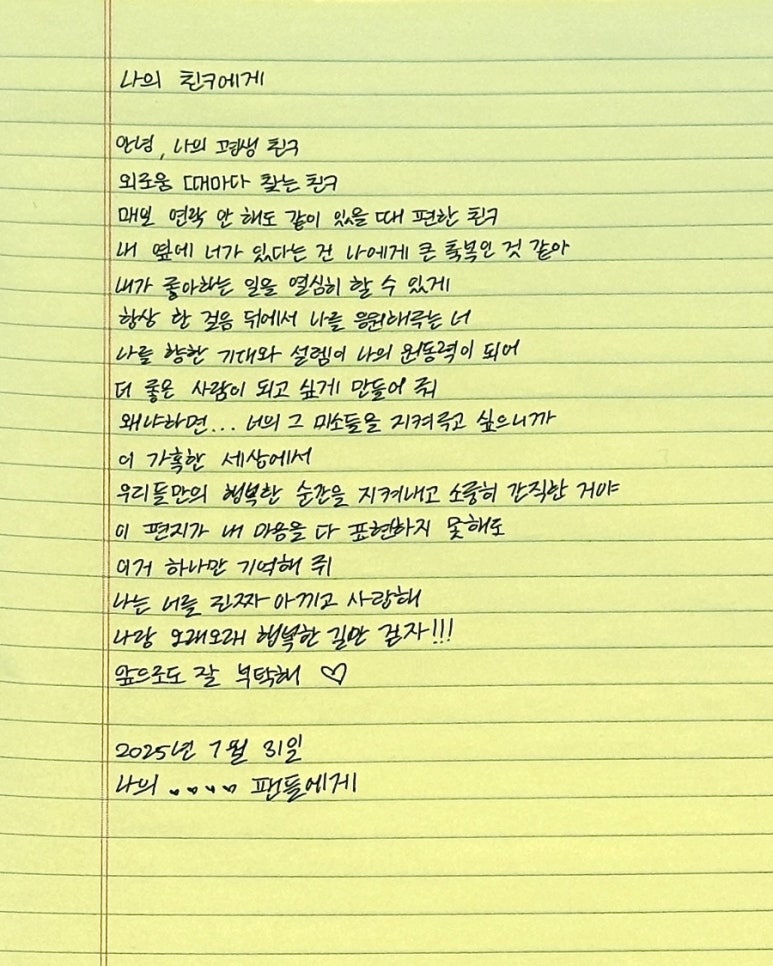 나의 친구에게
안녕, 나의 평생 친구
외로울 때마다 찾는 친구
매일 연락 안 해도 같이 있을 때 편한 친구
내 옆에 너가 있다는 건 나에게 큰 축복인 것 같아
내가 좋아하는 일을 열심히 할 수 있게
항상 한 걸음 뒤에서 나를 응원해주는 너
나를 향한 기대와 설렘이 나의 원동력이 되어
더 좋은 사람이 되고 싶게 만들어 줘
왜냐하면... 너의 그 미소들을 지켜주고 싶으니까
이 가혹한 세상에서
우리들만의 행복한 순간을 지켜내고 소중히 간직한 거야
이 편지가 내 마음을 다 표현하지 못해도
이거 하나만 기억해 줘
나는 너를 진짜 아끼고 사랑해
나랑 오래오래 행복한 길만 걷자!!!
앞으로도 잘 부탁해 ♡
2025년 7월 31일
나의 팬들에게